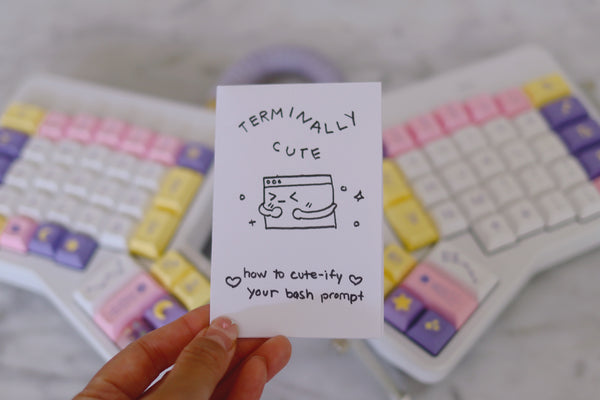 TERMINALLY
CUTE
how to cute-ify
your bash prompt